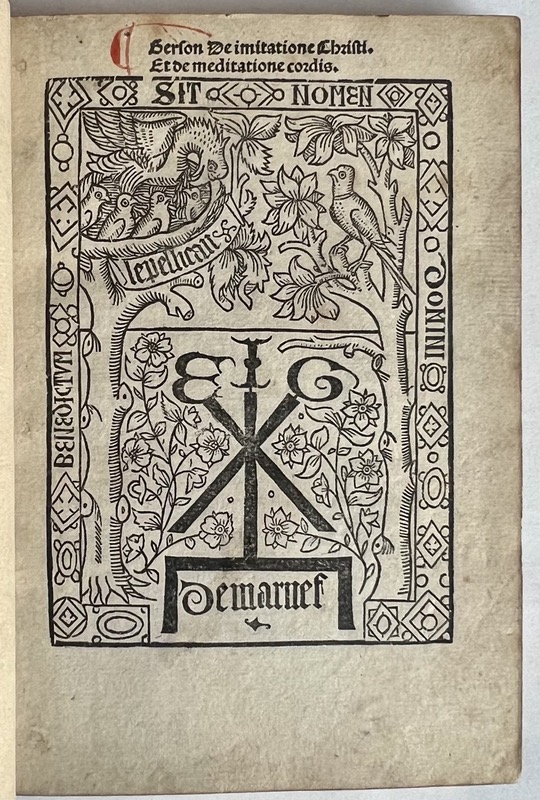 Gerson De imitatione Christi.
Et de meditatione cordis.
SIT NOMEN
DOMINI
BENEDICTVM
lepellican
E I G
Demarnef